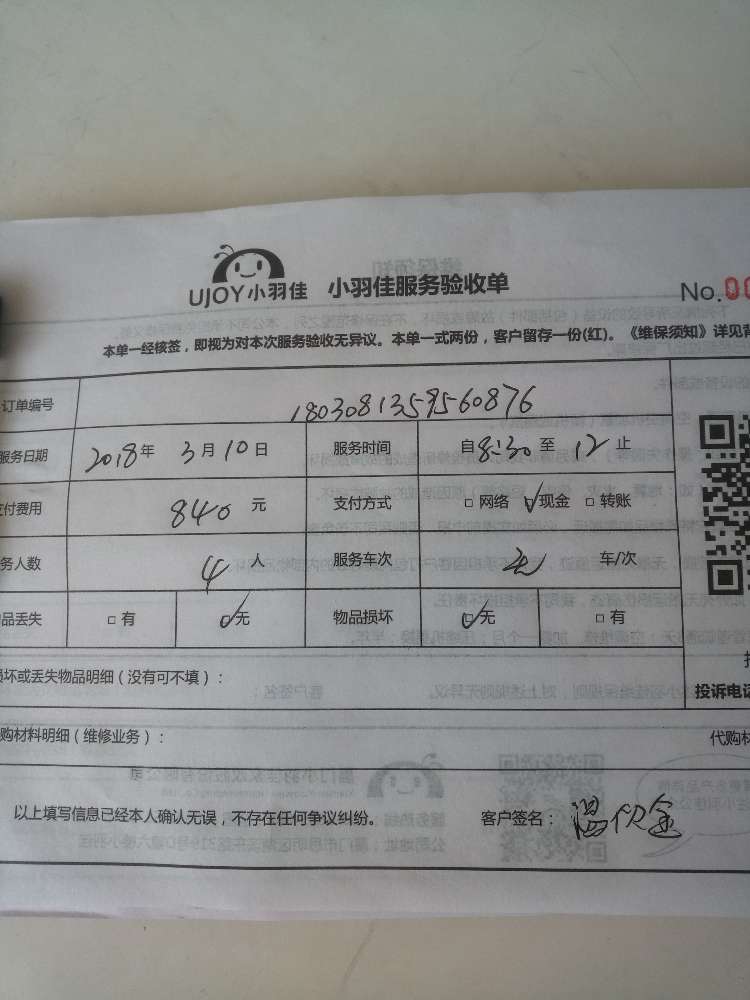 UJOY小羽佳 小羽佳服务验收单
No.00
本单一经核签，即视为对本次服务验收无异议。本单一式两份，客户留存一份(红)。《维保须知》详见背
订单编号 1803081359560876
服务日期 2018年 3月10日 服务时间 自8:30至12止
支付费用 840元 支付方式 □网络 ☑现金 □转账
务人数 4人 服务车次 无 车/次
品丢失 □有 ☑无 物品损坏 ☑无 □有
损坏或丢失物品明细(没有可不填)：
投诉电话
购材料明细(维修业务)： 代购材
以上填写信息已经本人确认无误，不存在任何争议纠纷。 客户签名：温金